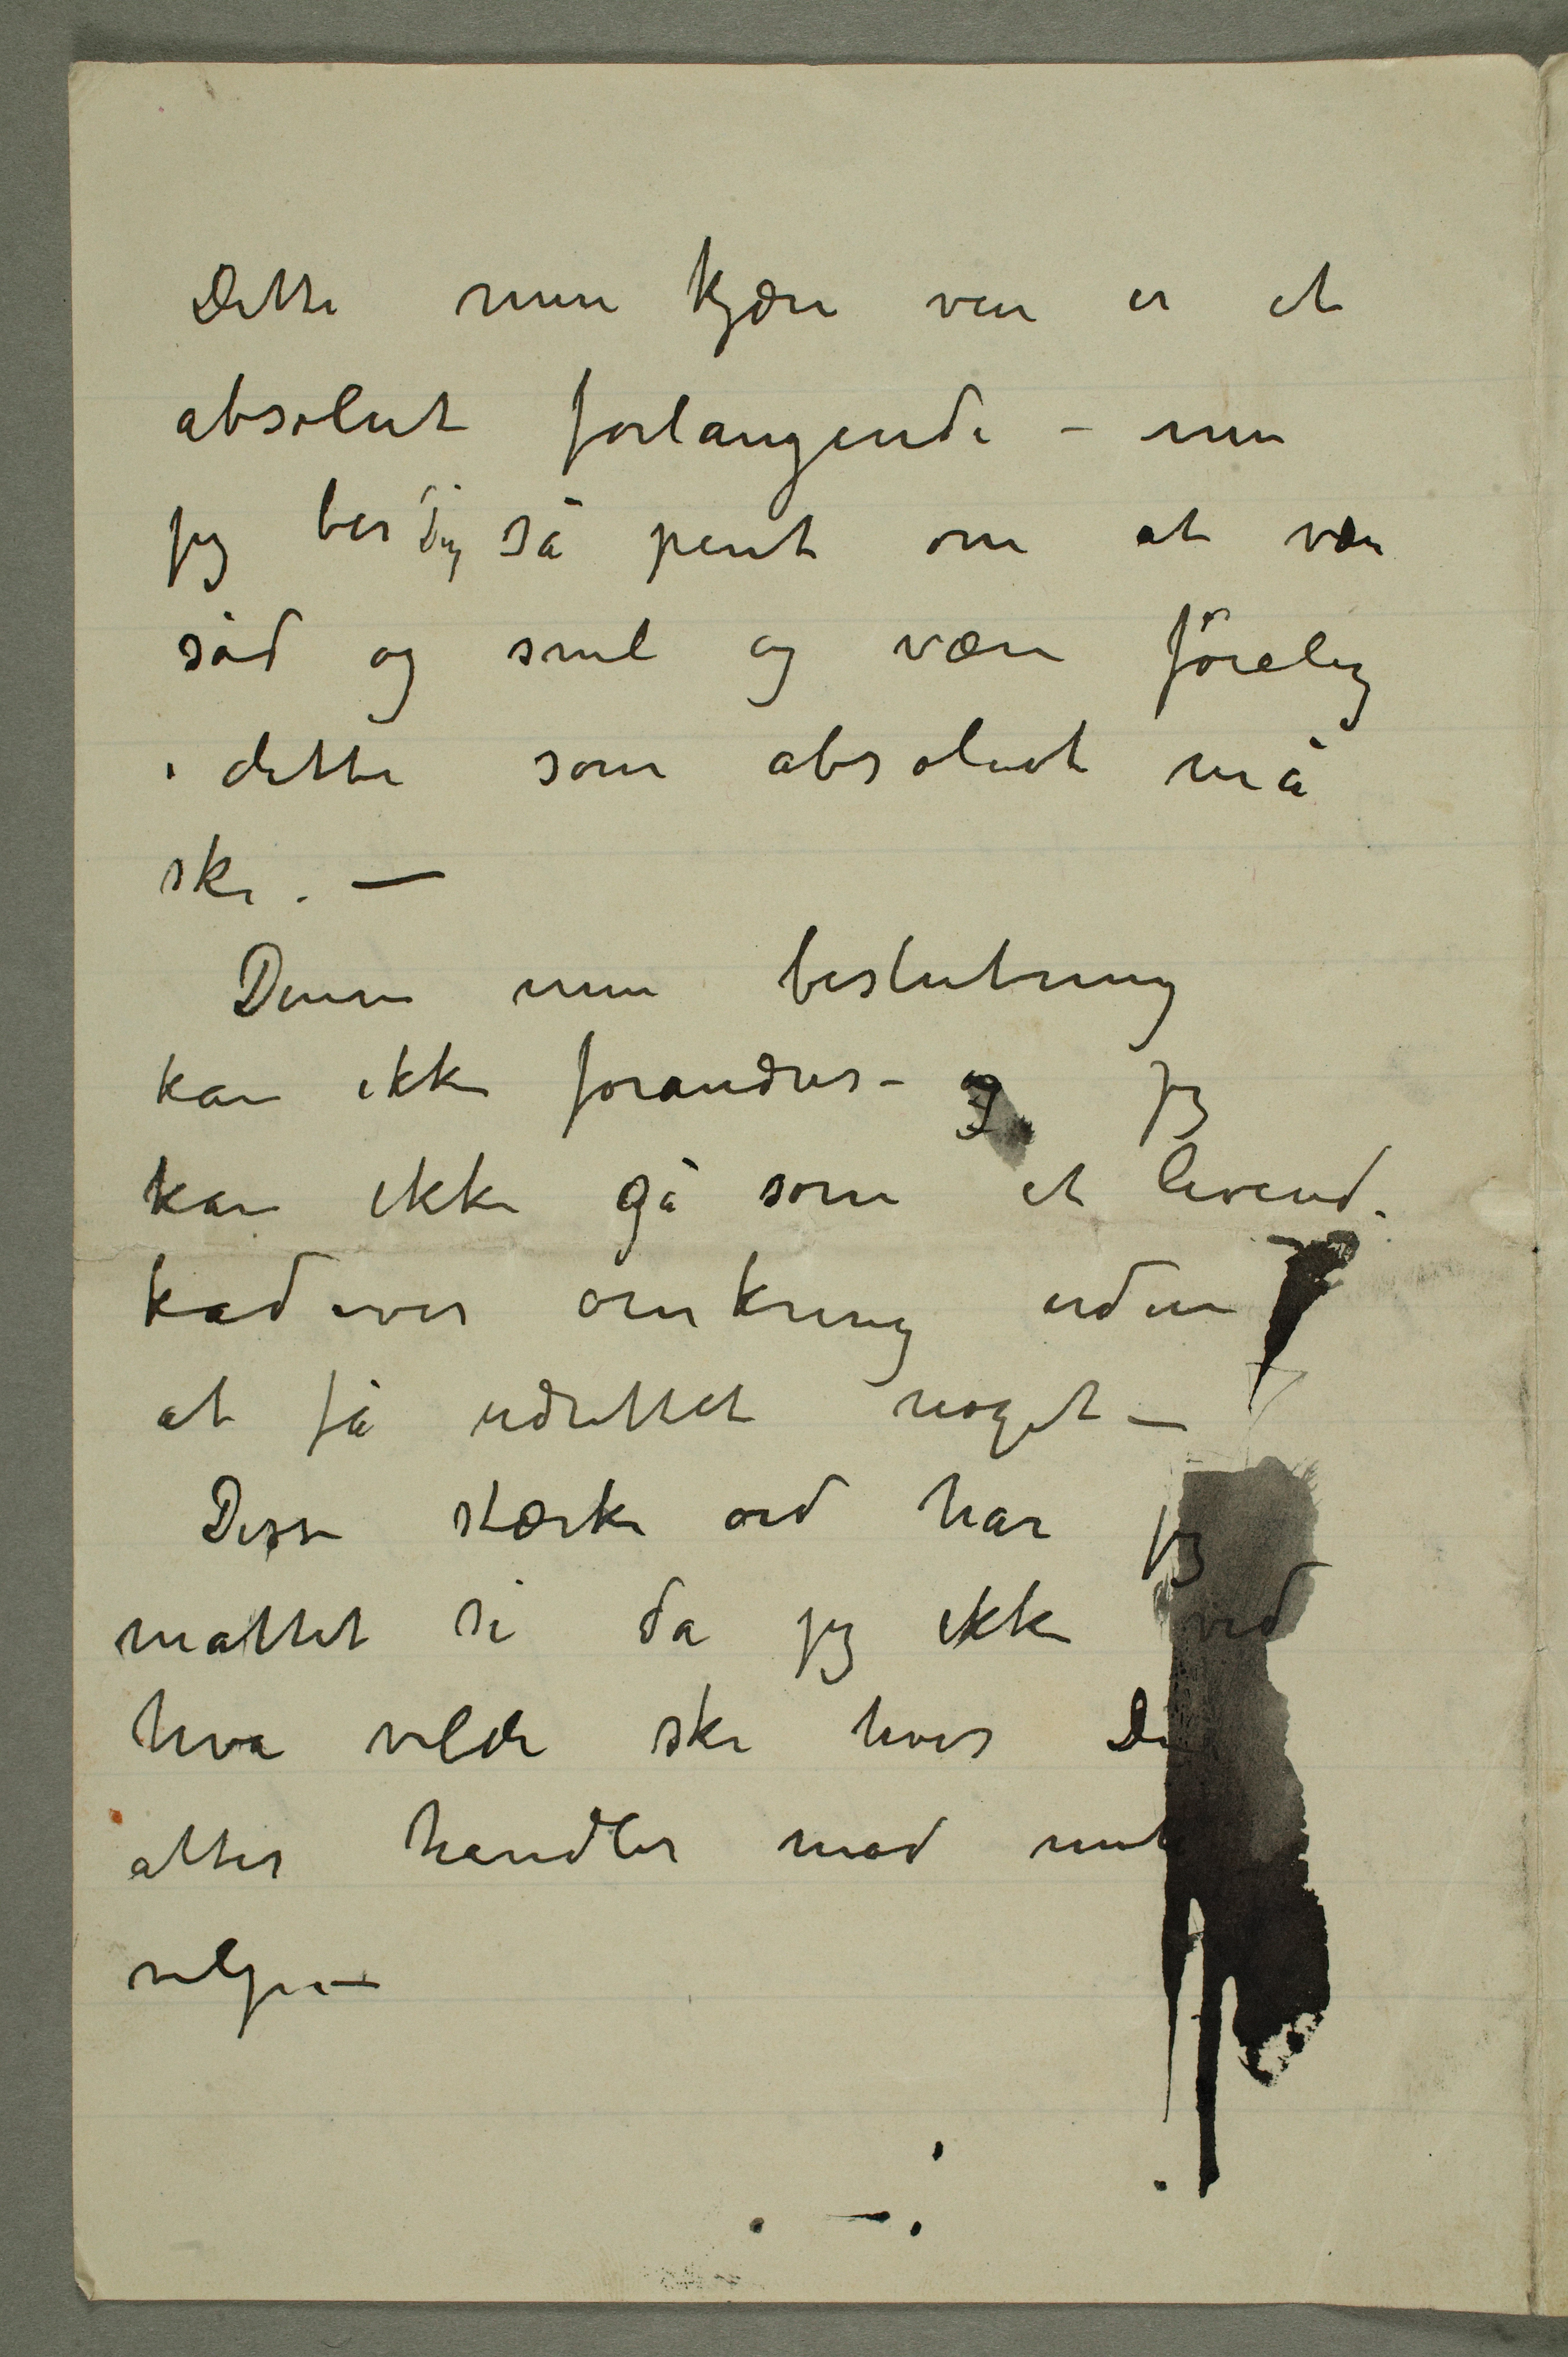 Dette min kjære ven er et
absolut forlangende – men
jeg ber Dig så pent om at vær
sød og snil og være føielig
i dette som absolut må
ske. –
Denne min beslutning
kan ikke forandres – og jeg
kan ikke gå som et levende
kadaver omkring uden
at få udrettet noget –
Disse stærke ord har jeg
måttet si da jeg ikke ved
hva vilde ske hvis Du
atter handler mod mit
vilje –